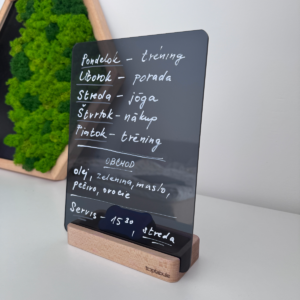 Pondelok - tréning
Utorok - porada
Streda - jóga
Štvrtok - nákup
Piatok - tréning
OBCHOD
olej, zelenina, maslo,
pečivo, ovocie
Servis - 15³⁰
, streda